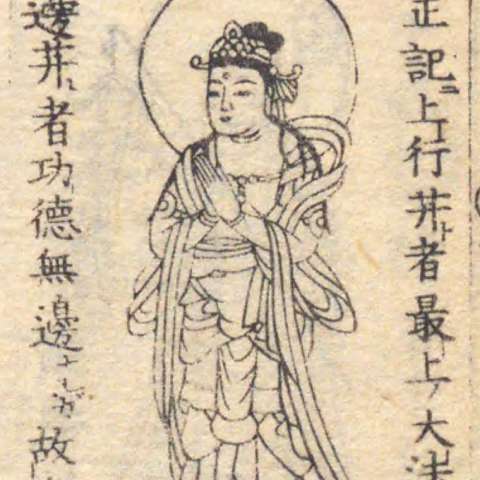 正記ニ上行𦬇ト者最上ノ大法
邊𦬇ト者功德無邊ナルガ故